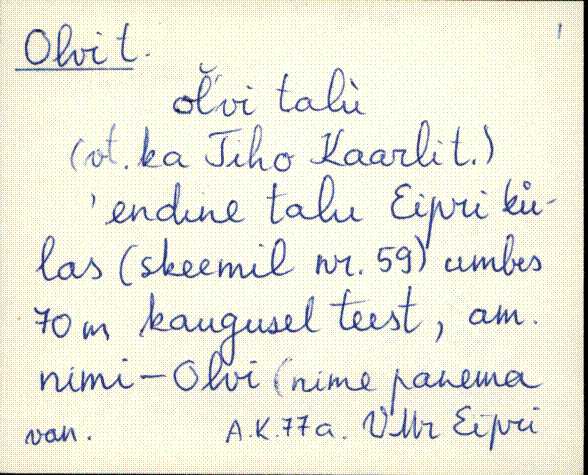 Olvi t. 1
ol̆vi talù
(vt. ka Tiho Kaarli t.)
'endine talu Eipri kü-
las (skeemil nr. 59) umbes
70 m kaugusel teest, am.
nimi – Olvi (nime panema
van. A.K. 77 a. VMr Eipri